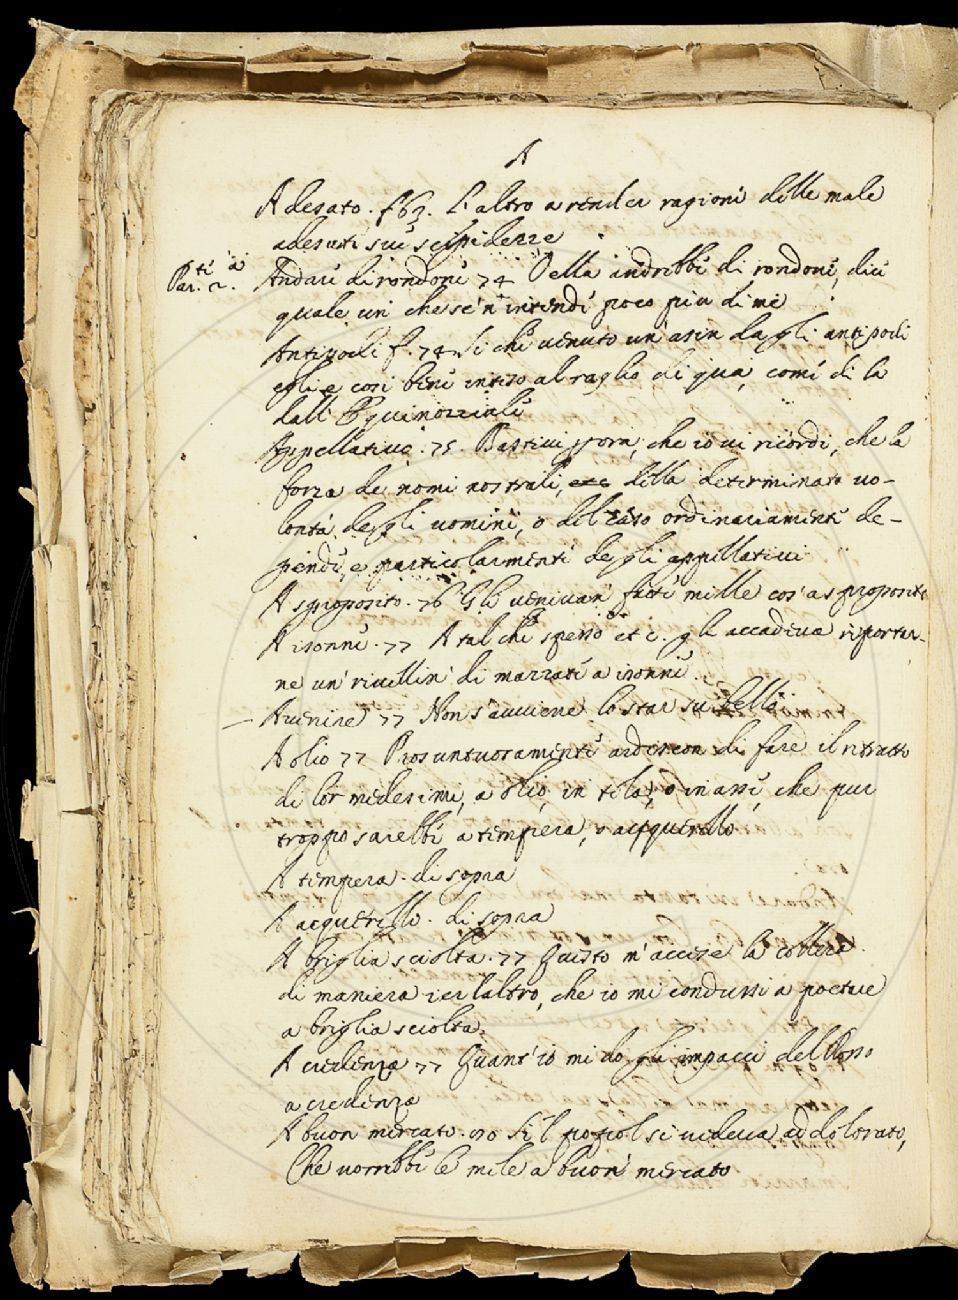 A
Adesato. f 63. L'altro a render ragioni delle male
adesati sue
Par.te 2.a
Andare di rondone 74 Vella andrebbe di rondone, dice
quale un che se n'intende poco piu di me
Antipodi f. 74. Si che venuto un'asin dagli antipodi
egli e così bene inteso al raglio di qua, come di la
dall'Equinozziale
Appellativo. 75. Bastivi sora, che io vi ricordi, che la
forza de nomi nostrali, della determinata vo-
lontà degli uomini, o del caso ordinariamente de-
pende, e particolarmente degli appellativi
A sproposito. 76 Gli venivan fatte mille cos'a sproposito
A isonne. 77 A tal che spesso etc. gli accadeva riportar-
ne un rivellin di mazzate a isonne
Avenire 77 Non s'avviene lo star su bella
A olio 77 Prosuntuosamente ardiscon di fare il ritratto
di lor medesimi, a olio, in tela, o in assi, che pur
troppo sarebbe a tempera, o acquerello
A tempera. di sopra
A acquerello. di sopra
A briglia sciolta. 77 Questo m'accese la collera
di maniera ier l'altro, che io mi condussi a poetare
a briglia sciolta.
A credenza 77 Quant'io mi do gl'impacci del Rosso
a credenza
A buon mercato. Se'l popol si vedeva addolorato,
Che vorrebbe le mele a buon mercato